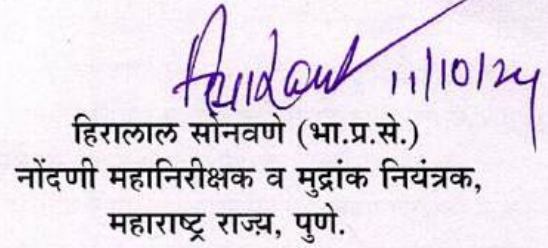 11/10/24
हिरालाल सोनवणे (भा.प्र.से.)
नोंदणी महानिरीक्षक व मुद्रांक नियंत्रक,
महाराष्ट्र राज्य, पुणे.